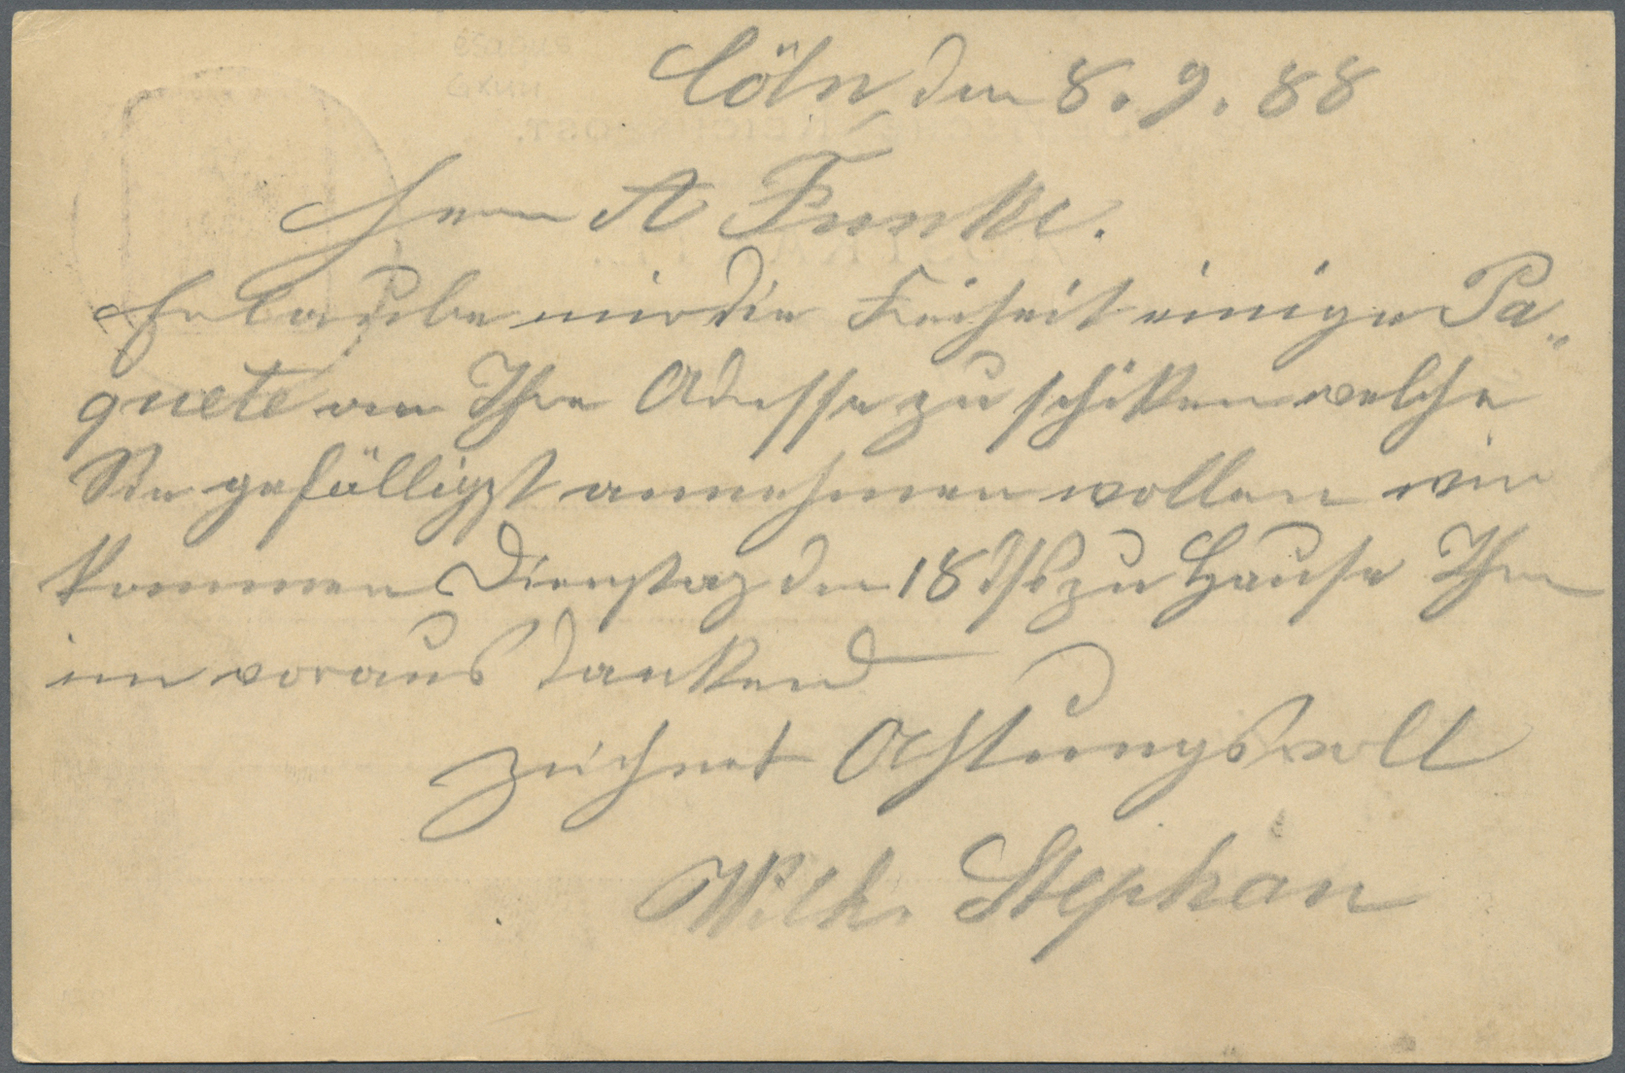 Cöln, den 8. 9. 88
Herrn A Funke.
Erlaube mir die Freiheit einige Pa„
quete an Ihre Adresse zu schikken welche
Sie gefälligst annehmen wollen wir
kommen Dienstag den 18 ds zu Hause Ihnen
im voraus dankend
zeichnet Achtungsvoll
Wilh. Stephan